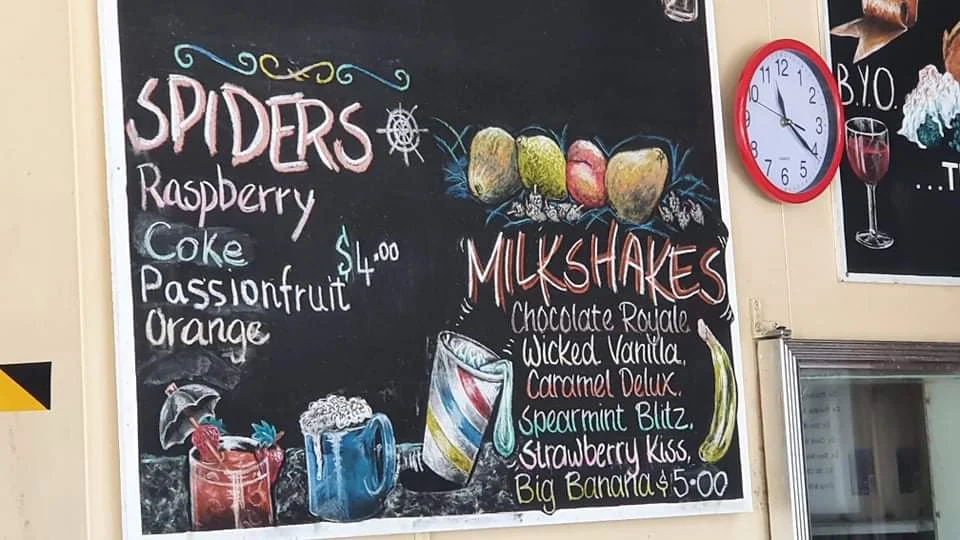 SPIDERS
Raspberry
Coke
$4.00
Passionfruit
Orange
MILKSHAKES
Chocolate Royale,
Wicked Vanilla,
Caramel Delux,
Spearmint Blitz,
Strawberry Kiss,
Big Banana $5.00
11 12 1
10 2
3
4
7 6 5
QUARTZ
B.Y.O.
...T